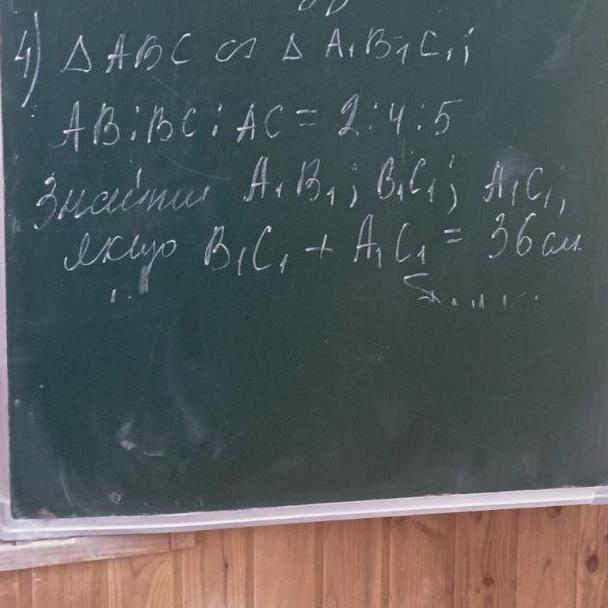 4) Δ ABC ∽ Δ A₁B₁C₁;
AB:BC:AC = 2:4:5
Знайти A₁B₁; B₁C₁; A₁C₁,
якщо B₁C₁ + A₁C₁ = 36 см